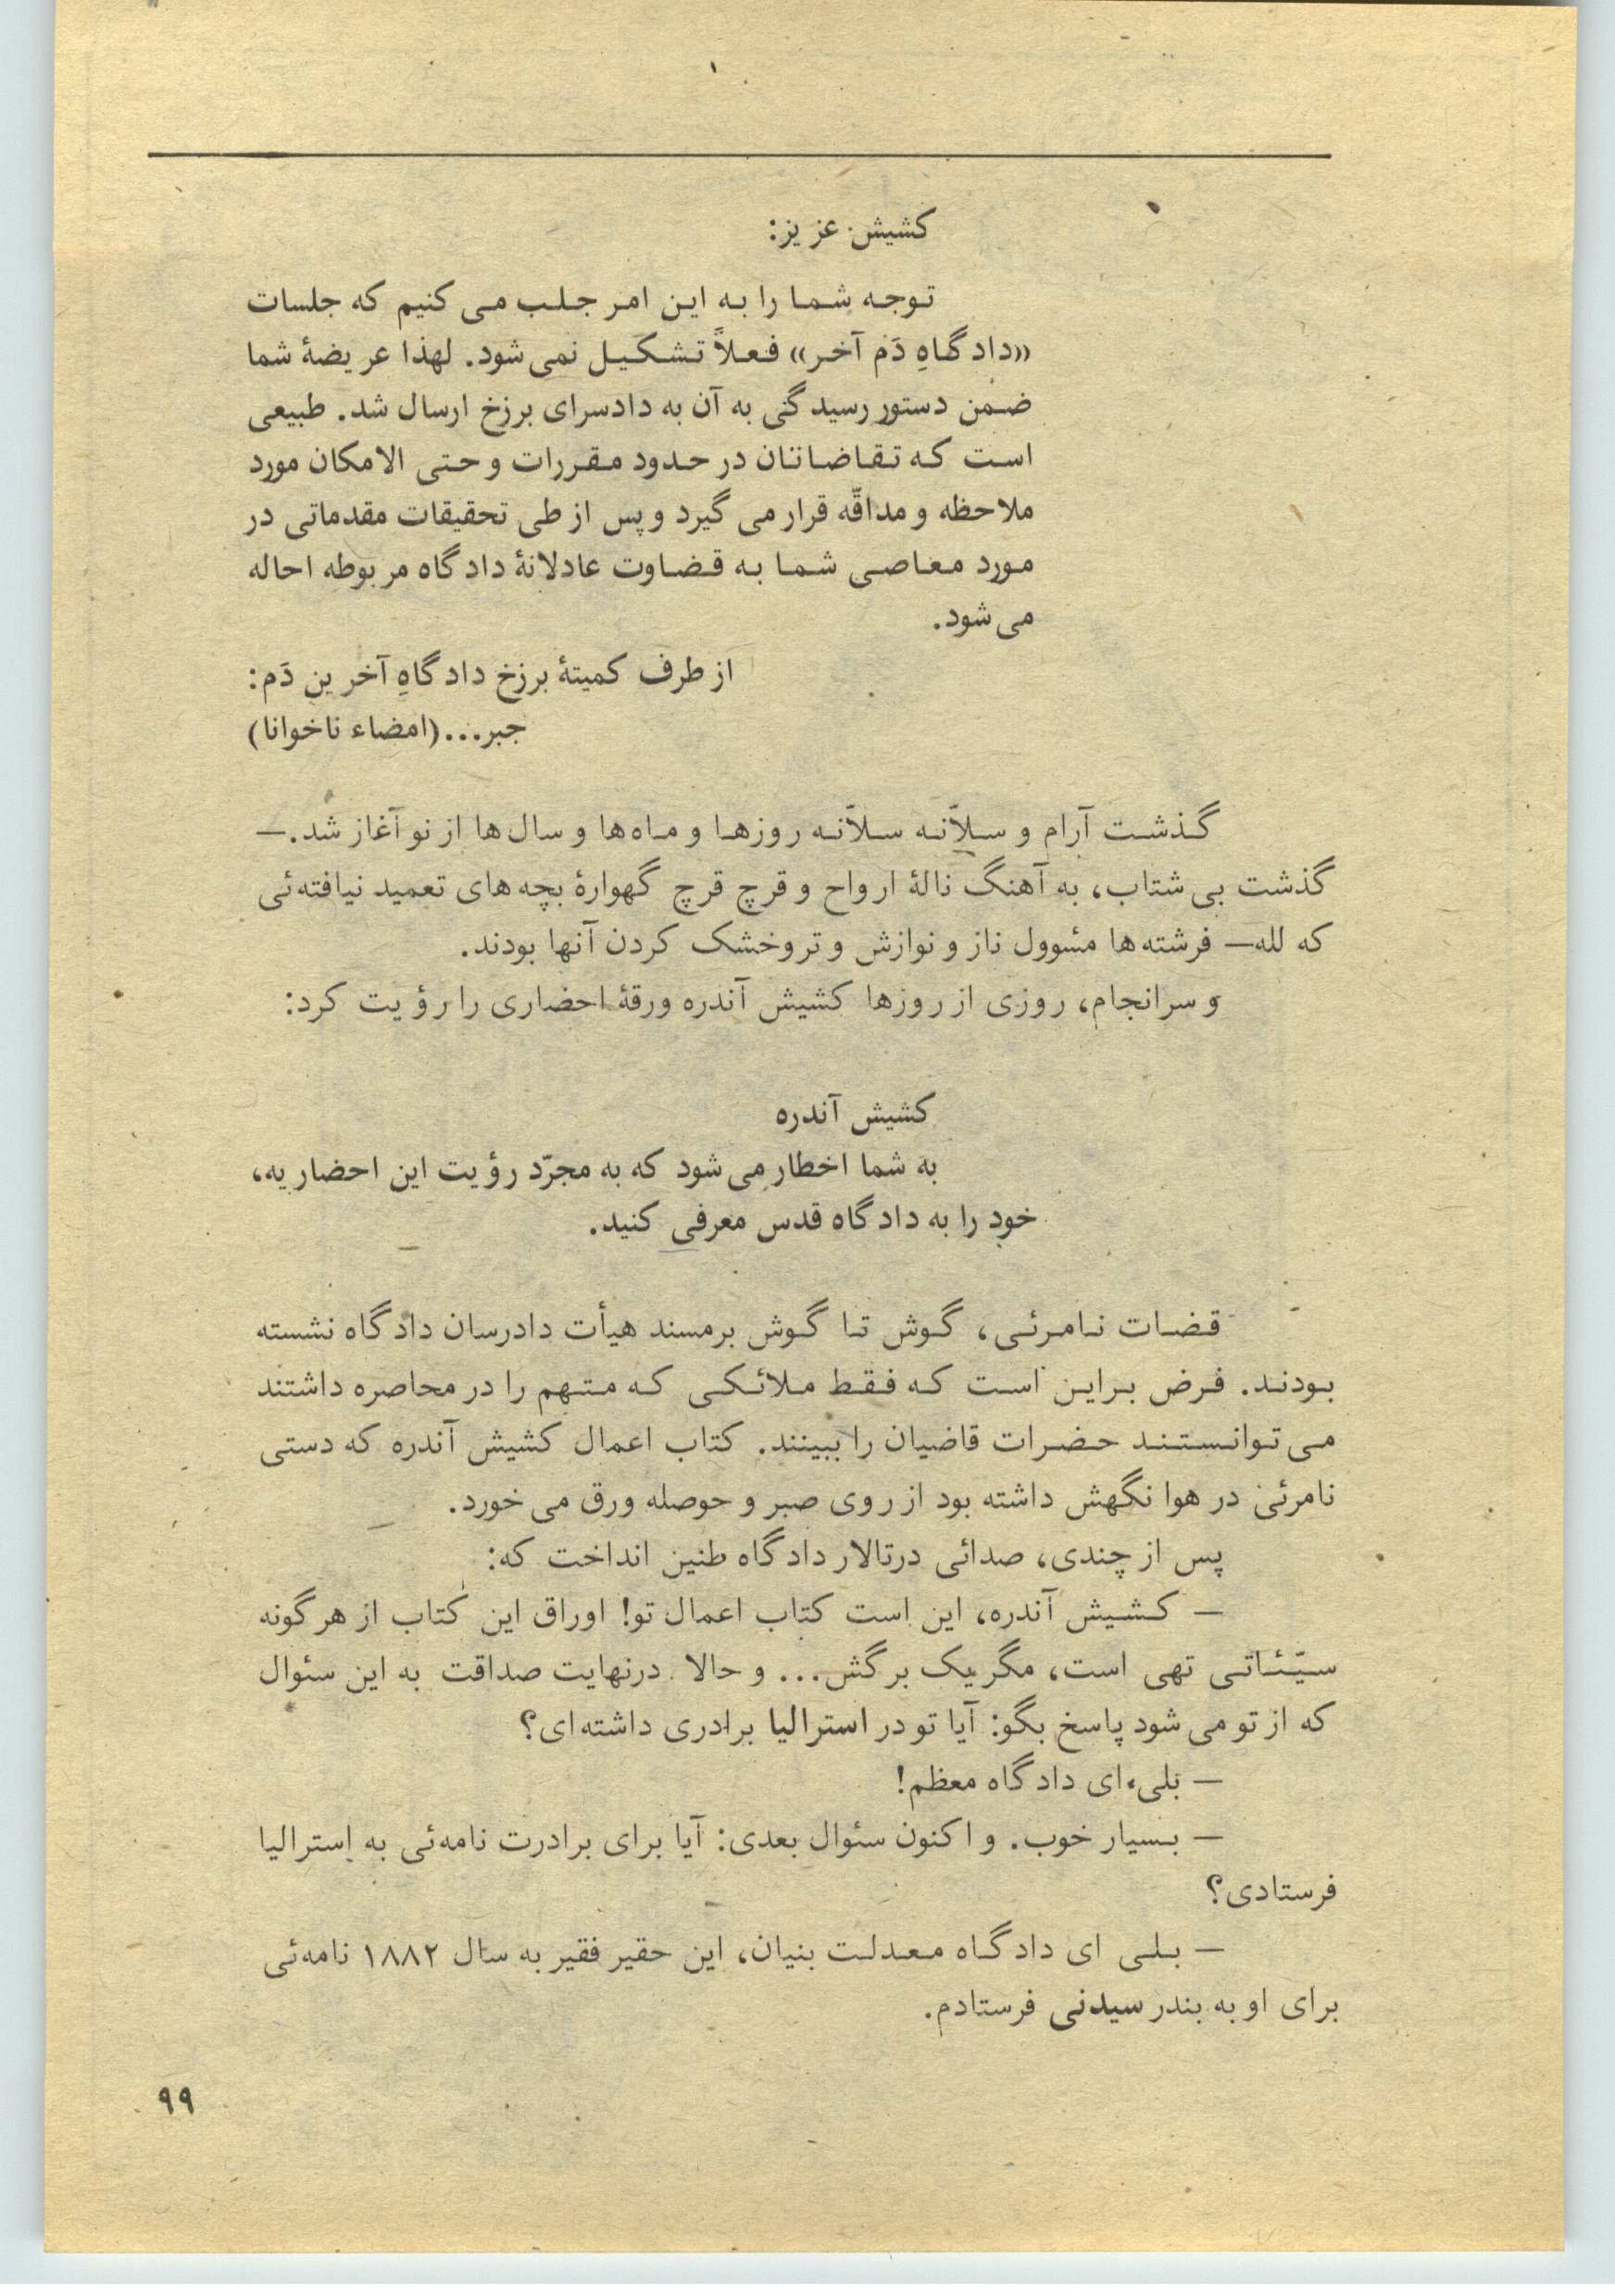 کشیش عزیز:
توجه شما را به این امر جلب می کنیم که جلسات
«دادگاهِ دَم آخر» فعلاً تشکیل نمی شود. لهذا عریضهٔ شما
ضمن دستور رسیدگی به آن به دادسرای برزخ ارسال شد. طبیعی
است که تقاضاتان در حدود مقررات و حتی الامکان مورد
ملاحظه و مداقّه قرار می گیرد و پس از طی تحقیقات مقدماتی در
مورد معاصی شما به قضاوت عادلانهٔ دادگاه مربوطه احاله
می شود.
از طرف کمیتهٔ برزخ دادگاهِ آخرین دَم:
جبر...(امضاء ناخوانا)
گذشت آرام و سلاّنه سلاّنه روزها و ماه ها و سال ها از نو آغاز شد.—
گذشت بی شتاب، به آهنگ نالهٔ ارواح و قرچ قرچ گهوارهٔ بچه های تعمید نیافته ئی
که لله— فرشته ها مسٔوول ناز و نوازش و تروخشک کردن آنها بودند.
و سرانجام، روزی از روزها کشیش آندره ورقهٔ احضاری را رؤیت کرد:
کشیش آندره
به شما اخطار می شود که به مجرّد رؤیت این احضاریه،
خود را به دادگاه قدس معرفی کنید.
قضات نامرئی، گوش تا گوش برمسند هیأت دادرسان دادگاه نشسته
بودند. فرض براین است که فقط ملائکی که متهم را در محاصره داشتند
می توانستند حضرات قاضیان را ببینند. کتاب اعمال کشیش آندره که دستی
نامرئی در هوا نگهش داشته بود از روی صبر و حوصله ورق می خورد.
پس از چندی، صدائی درتالار دادگاه طنین انداخت که:
— کشیش آندره، این است کتاب اعمال تو! اوراق این کتاب از هرگونه
سیّئاتی تهی است، مگر یک برگش... و حالا درنهایت صداقت به این سئوال
که از تو می شود پاسخ بگو: آیا تو در استرالیا برادری داشته ای؟
— بَلی، ای دادگاه معظم!
— بسیار خوب. و اکنون سئوال بعدی: آیا برای برادرت نامه ئی به استرالیا
فرستادی؟
— بلی ای دادگاه معدلت بنیان، این حقیر فقیر به سال ۱۸۸۲ نامه ئی
برای او به بندر سیدنی فرستادم.
۹۹